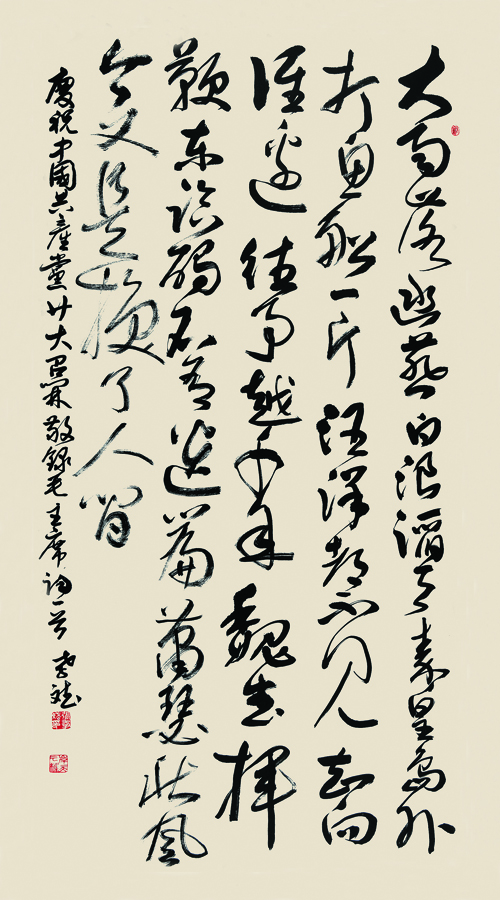 大雨落幽燕白浪滔天秦皇島外
打魚船一片汪洋都不見知向
誰邊往事越千年魏武揮
鞭東臨碣石有遺篇蕭瑟秋風
今又是換了人間
慶祝中國共產黨廿大召開敬錄毛主席詞一首